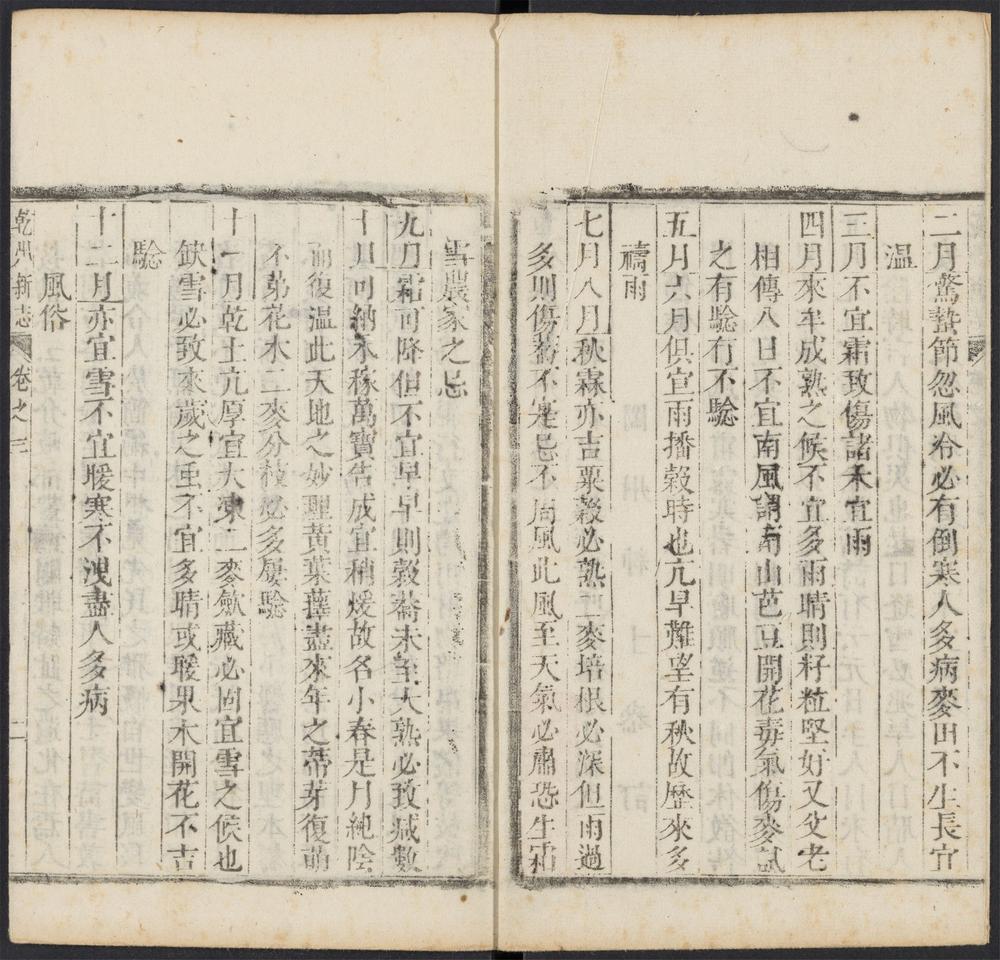 二月驚蟄節忽風冷必有倒寒人多病麥田不生長宜
溫
三月不宜霜致傷諸禾宜雨
四月來牟成熟之候不宜多雨晴則籽粒堅好又父老
相傳八日不宜南風謂南山芭豆開花毒氣傷麥試
之有驗有不驗
五月六月俱宜雨播穀時也亢旱難望有秋故歷來多
禱雨
七月八月秋霖亦吉粟穀必熟二麥培根必深但雨過
多則傷蕎不寔忌不周風此風至天氣必肅恐生霜
雪農家之忌
九月霜可降但不宜早早則穀蕎未至大熟必致减數
十月可納禾稼萬寶告成宜稍煖故名小春是月純陰
而復温此天地之妙理黃葉蘀盡來年之蒂芽復萌
不茀花木二麥分枝必多屢驗
十一月乾土亢厚宜大凍二麥斂藏必固宜雪之候也
缺雪必致來歲之䖝不宜多晴或暖果木開花不吉
驗
十二月亦宜雪不宜暖寒不洩盡人多病
風俗
乾州新志 卷之三 二